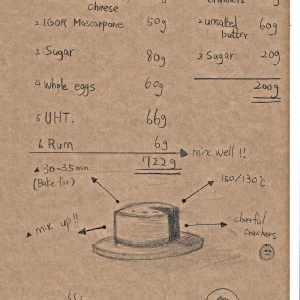 cheese
2 IGOR Mascarpone 50g
3 Sugar 80g
4 Whole eggs 60g
5 UHT. 66g
6 Rum 6g
722g
2 unsalted
butter 60g
3 Sugar 20g
200g
mix well !!
▲ 30-35min
(Bake for)
150/130°c
▲ mix up!!
cheerful
crackers